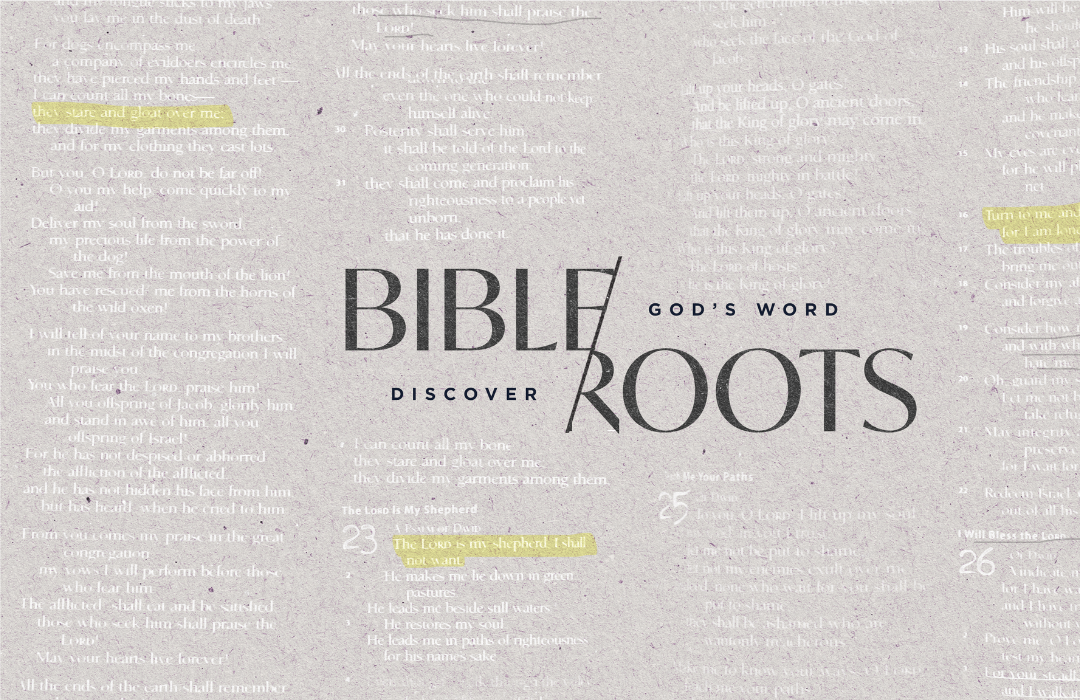 and my tongue sticks to my jaws
you lay me in the dust of death
For dogs encompass me
a company of evildoers encircles me
they have pierced my hands and feet—
I can count all my bones—
they stare and gloat over me;
they divide my garments among them,
and for my clothing they cast lots
But you, O LORD, do not be far off!
O you my help, come quickly to my
aid!
Deliver my soul from the sword,
my precious life from the power of
the dog!
Save me from the mouth of the lion!
You have rescued me from the horns of
the wild oxen!
I will tell of your name to my brothers;
in the midst of the congregation I will
praise you
You who fear the LORD, praise him!
All you offspring of Jacob, glorify him,
and stand in awe of him, all you
offspring of Israel!
For he has not despised or abhorred
the affliction of the afflicted,
and he has not hidden his face from him,
but has heard, when he cried to him
From you comes my praise in the great
congregation
my vows I will perform before those
who fear him
The afflicted shall eat and be satisfied
those who seek him shall praise the
LORD!
May your hearts live forever!
All the ends of the earth shall remember
those who seek him shall praise the
LORD!
May your hearts live forever!
All the ends of the earth shall remember
even the one who could not keep
himself alive
30 Posterity shall serve him
it shall be told of the Lord to the
coming generation
31 they shall come and proclaim his
righteousness to a people yet
unborn
that he has done it.
BIBLE
GOD'S WORD
DISCOVER
ROOTS
I can count all my bone
they stare and gloat over me
they divide my garments among them,
The LORD Is My Shepherd
23 A PSALM OF DAVID
The LORD is my shepherd, I shall
not want.
2 He makes me lie down in green
pastures
He leads me beside still waters
3 He restores my soul
He leads me in paths of righteousness
for his name's sake
4
seek him
who seek the face of the God of
Jacob
up your heads, O gates,
And be lifted up, O ancient doors,
that the King of glory may come in
is this King of glory
The LORD, strong and mighty,
the LORD, mighty in battle!
up your heads, O gates!
And lift them up, O ancient doors,
that the King of glory may come in
is this King of glory?
The LORD of hosts
he is the King of glory!
Me Your Paths
25 OF DAVID
To you, O LORD, I lift up my soul
me not be put to shame
let not my enemies exult over me
none who wait for you shall be
put to shame
they shall be ashamed who are
wantonly treacherous
me to know your ways, O LORD
teach me your paths
Him will he
he shou
13 His soul shall a
and his offsp
14 The friendship
who fear
and he make
covenant
15 My eyes are ev
for he will p
net
16 Turn to me and
for I am lone
17 The troubles of
bring me out
18 Consider my af
and forgive a
19 Consider how
and with wh
hate me
20 Oh, guard my s
Let me not b
take refu
21 May integrity a
preserv
for I wait for
22 Redeem Israel, O
out of all his
I Will Bless the LORD
26 OF DAVID
Vindicate m
for I have
and I have t
without w
2 Prove me, O L
test my hear
3 For your steadfa
and I walk